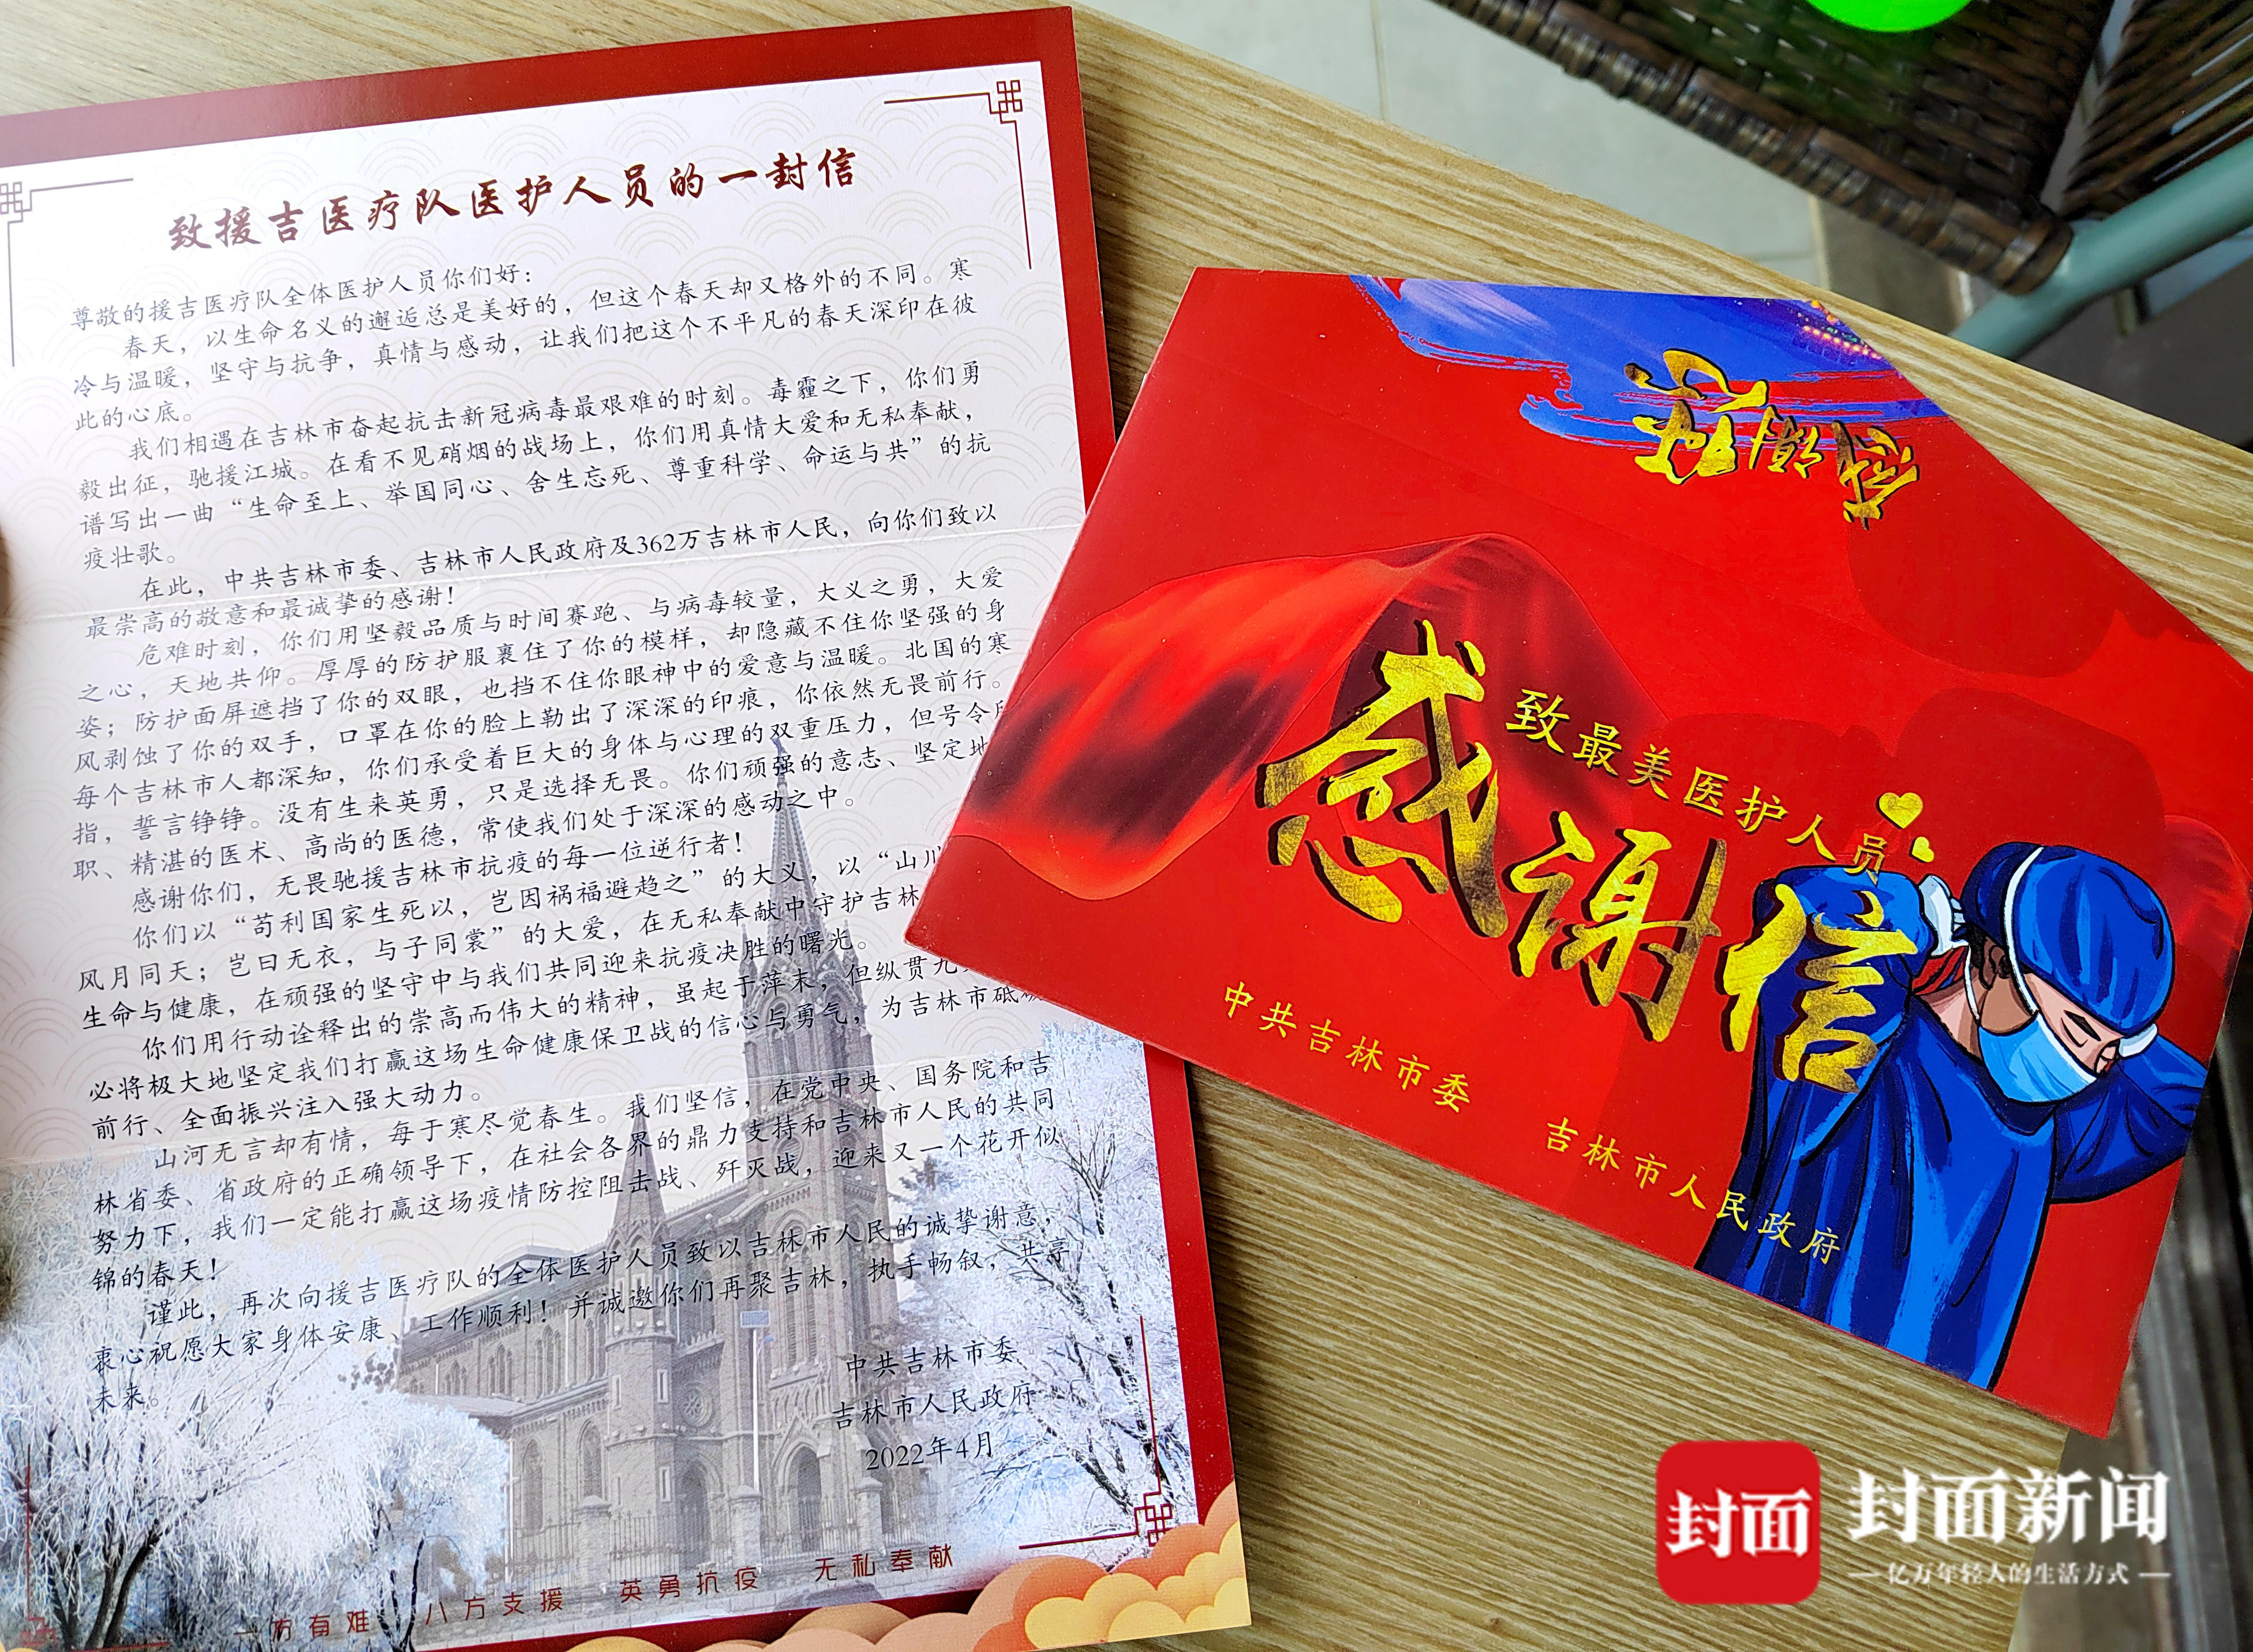 致援吉医疗队医护人员的一封信
尊敬的援吉医疗队全体医护人员你们好：
春天，以生命名义的邂逅总是美好的，但这个春天却又格外的不同。寒
冷与温暖，坚守与抗争，真情与感动，让我们把这个不平凡的春天深印在彼
此的心底。
我们相遇在吉林市奋起抗击新冠病毒最艰难的时刻。毒霾之下，你们勇
毅出征，驰援江城。在看不见硝烟的战场上，你们用真情大爱和无私奉献，
谱写出一曲“生命至上、举国同心、舍生忘死、尊重科学、命运与共”的抗
疫壮歌。
在此，中共吉林市委、吉林市人民政府及362万吉林市人民，向你们致以
最崇高的敬意和最诚挚的感谢！
危难时刻，你们用坚毅品质与时间赛跑、与病毒较量，大义之勇，大爱
之心，天地共仰。厚厚的防护服裹住了你的模样，却隐藏不住你坚强的身
姿；防护面屏遮挡了你的双眼，也挡不住你眼神中的爱意与温暖。北国的寒
风剥蚀了你的双手，口罩在你的脸上勒出了深深的印痕，你依然无畏前行。
每个吉林市人都深知，你们承受着巨大的身体与心理的双重压力，但号令所
指，誓言铮铮。没有生来英勇，只是选择无畏。你们顽强的意志、坚定地
职、精湛的医术、高尚的医德，常使我们处于深深的感动之中。
感谢你们，无畏驰援吉林市抗疫的每一位逆行者！
你们以“苟利国家生死以，岂因祸福避趋之”的大义，以“山川
风月同天；岂曰无衣，与子同裳”的大爱，在无私奉献中守护吉林
生命与健康，在顽强的坚守中与我们共同迎来抗疫决胜的曙光。
你们用行动诠释出的崇高而伟大的精神，虽起于萍末，但纵贯九
必将极大地坚定我们打赢这场生命健康保卫战的信心与勇气，为吉林市砥砺
前行、全面振兴注入强大动力。
山河无言却有情，每于寒尽觉春生。我们坚信，在党中央、国务院和吉
林省委、省政府的正确领导下，在社会各界的鼎力支持和吉林市人民的共同
努力下，我们一定能打赢这场疫情防控阻击战、歼灭战，迎来又一个花开似
锦的春天！
谨此，再次向援吉医疗队的全体医护人员致以吉林市人民的诚挚谢意，
衷心祝愿大家身体安康、工作顺利！并诚邀你们再聚吉林，执手畅叙，共享
未来。
中共吉林市委
吉林市人民政府
2022年4月
一方有难 八方支援 英勇抗疫 无私奉献
感谢您
致最美医护人员
感谢信
中共吉林市委 吉林市人民政府
封面
封面新闻
亿万年轻人的生活方式